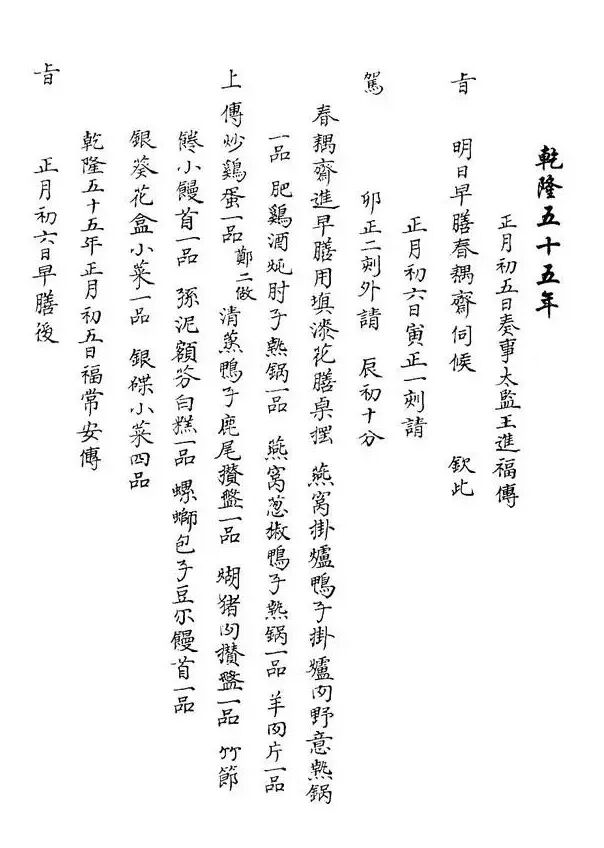 乾隆五十五年
正月初五日奏事太監王進福傳
旨 明日早膳春耦齋伺候 欽此
正月初六日寅正一刻請
駕 卯正二刻外請 辰初十分
春耦齋進早膳用填漆花膳桌擺 燕窩掛爐鴨子掛爐肉野意熱鍋
一品 肥鷄酒炖肘子熱鍋一品 燕窩葱椒鴨子熱鍋一品 羊肉片一品
上傳炒鷄蛋一品 鄭二做 清蒸鴨子鹿尾攢盤一品 煳猪肉攢盤一品 竹節
餋小饅首一品 孫泥額芬白糕一品 螺螄包子豆尔饅首一品
銀葵花盒小菜一品 銀碟小菜四品
乾隆五十五年正月初五日福常安傳
旨 正月初六日早膳後